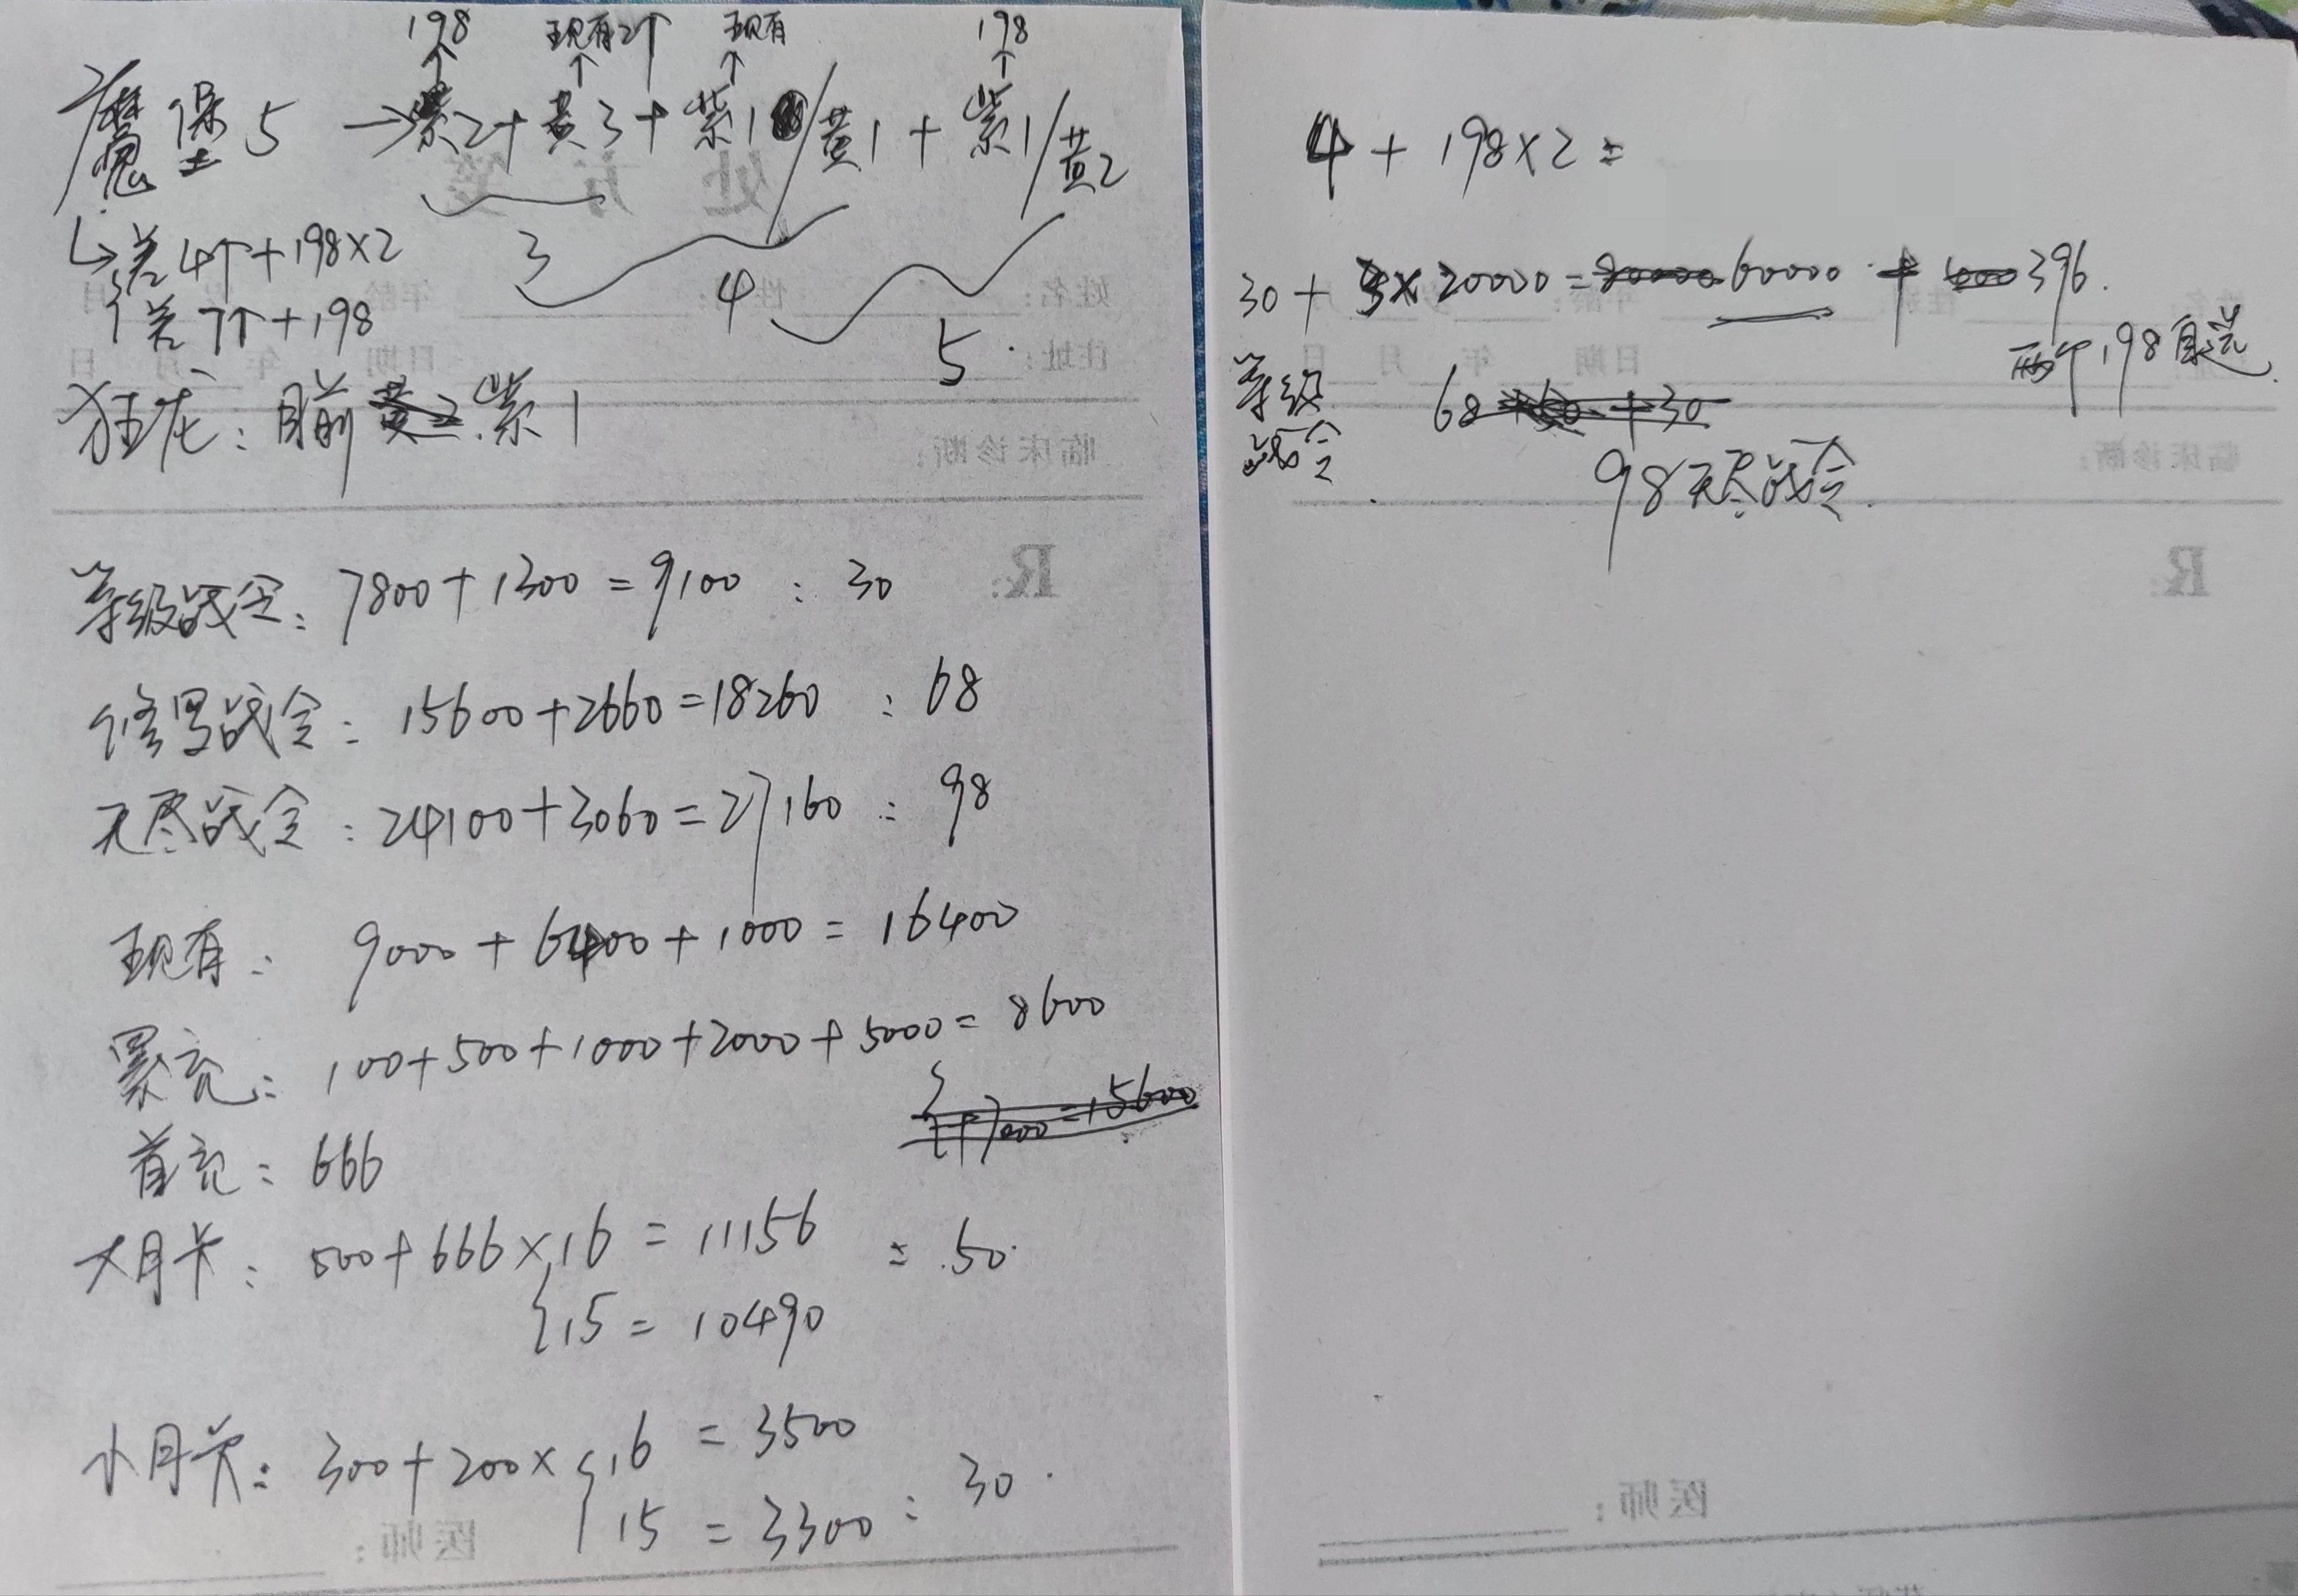 198 现有2个 现有 198
魔堡5 →紫2+黄3+紫1/黄1+紫1/黄2
↳差4个+198×2
差7个+198
3 4 5.
狂龙：目前紫1
等级战令：7800+1300=9100 : 30
修罗战令：15600+2660=18260 : 68
无尽战令：24100+3060=27160 : 98
现有：9000+6400+1000=16400
累充：100+500+1000+2000+5000=8600
+7000=15600
首充：666
大月卡：500+666×16=11156 = 50.
15=10490
小月卡：300+200×16=3500
15=3300 : 30.
处方笺
姓名： 性别： 年龄 月
住址： 日期 年 月 日
临床诊断：
R:
医师：
4+198×2=
30+3×20000=80000 60000+400 396.
两个198自选.
等级战令 68+50+30
98无尽战令.
年龄：
日期 年 月 日
临床诊断：
R:
医师：